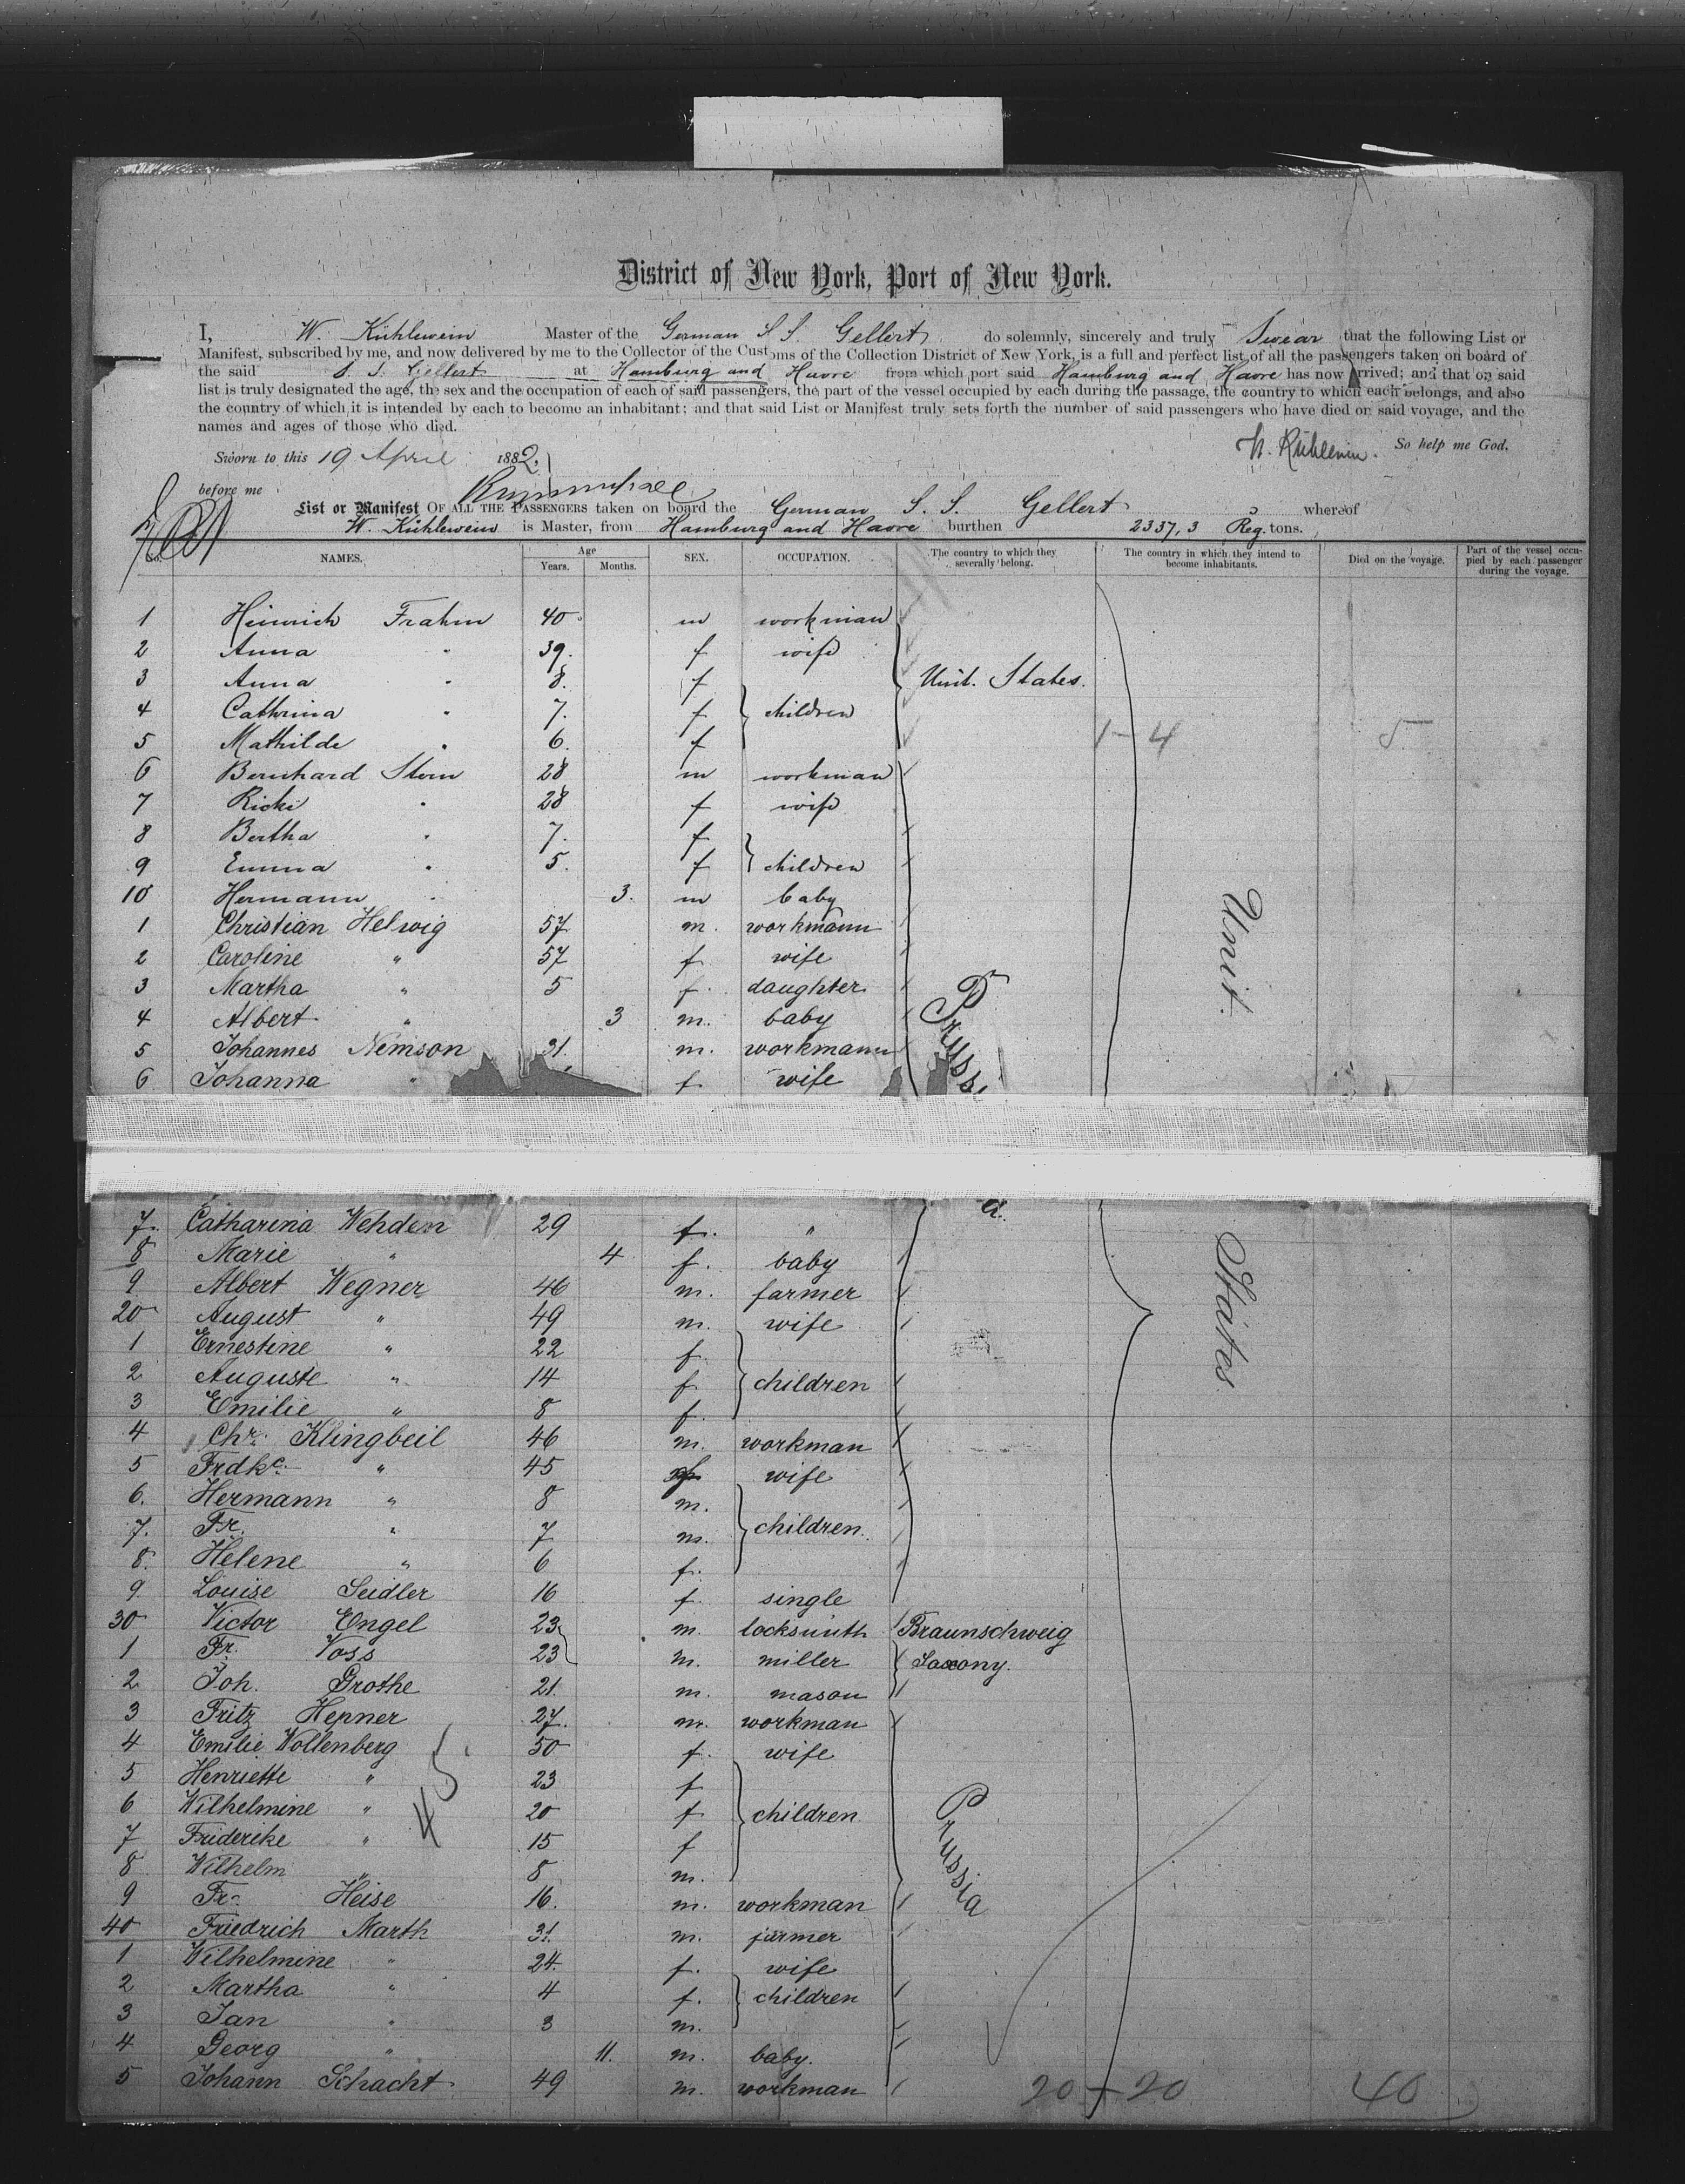 District of New York, Port of New York.
I, W. Kühlewein Master of the German S. S. Gellert do solemnly, sincerely and truly Swear that the following List or
Manifest, subscribed by me, and now delivered by me to the Collector of the Customs of the Collection District of New York, is a full and perfect list of all the passengers taken on board of
the said S. S. Gellert at Hamburg and Havre from which port said Hamburg and Havre has now arrived; and that on said
list is truly designated the age, the sex and the occupation of each of said passengers, the part of the vessel occupied by each during the passage, the country to which each belongs, and also
the country of which it is intended by each to become an inhabitant; and that said List or Manifest truly sets forth the number of said passengers who have died on said voyage, and the
names and ages of those who died.
W. Kühlewein. So help me God.
Sworn to this 19 April 1882.
before me
List or Manifest OF ALL THE PASSENGERS taken on board the German S. S. Gellert whereof
W. Kühlewein is Master, from Hamburg and Havre burthen 2337,3 Reg. tons.
No. NAMES. Age Years. Months. SEX. OCCUPATION. The country to which they severally belong. The country in which they intend to become inhabitants. Died on the voyage. Part of the vessel occupied by each passenger during the voyage.
1 Heinrich Frahm 40 m workman
2 Anna " 39. f wife
3 Anna " 8. f Unit. States.
4 Cathrina " 7. f children
5 Mathilde " 6. f 1 - 4 5
6 Bernhard Stern 28 m workman
7 Ricki " 28 f wife
8 Bertha " 7. f
9 Emma " 5. f children
10 Hermann " 3. m baby
1 Christian Helwig 57 m. workmann
2 Caroline " 57 f wife
3 Martha " 5 f. daughter
4 Albert " 3 m. baby
5 Johannes Nemson 31. m. workmann
6 Johanna " f. wife
Prussia.
Unit. States
7. Catharina Wehden 29 f. "
8 Marie " 4 f. baby
9 Albert Wegner 46 m. farmer
20 August " 49 m. wife
1 Ernestine " 22 f.
2 Auguste " 14 f. children
3 Emilie " 8 f.
4 Chr. Klingbeil 46 m. workman
5 Frdke. " 45 f wife
6. Hermann " 8 m.
7. Fr. " 7 m. children.
8. Helene " 6 f.
9. Louise Seidler 16 f. single
30 Victor Engel 23 m. locksmith Braunschweig
1 Fr. Voss 23 m. miller Saxony.
2 Joh. Grothe 21. m. mason
3 Fritz Hepner 27. m. workman
4 Emilie Wollenberg 50 f. wife
5 Henriette " 23 f
6 Wilhelmine " 20 f children
7 Friderike " 15 f
8 Wilhelm " 8 m.
9 Fr. Heise 16. m. workman
40 Friedrich Marth 31. m. farmer
1 Wilhelmine " 24. f. wife
2 Martha " 4 f. children
3 Jan " 3 m.
4 Georg " 11. m. baby.
5 Johann Schacht 49 m. workman
Prussia
45
20 + 20 40